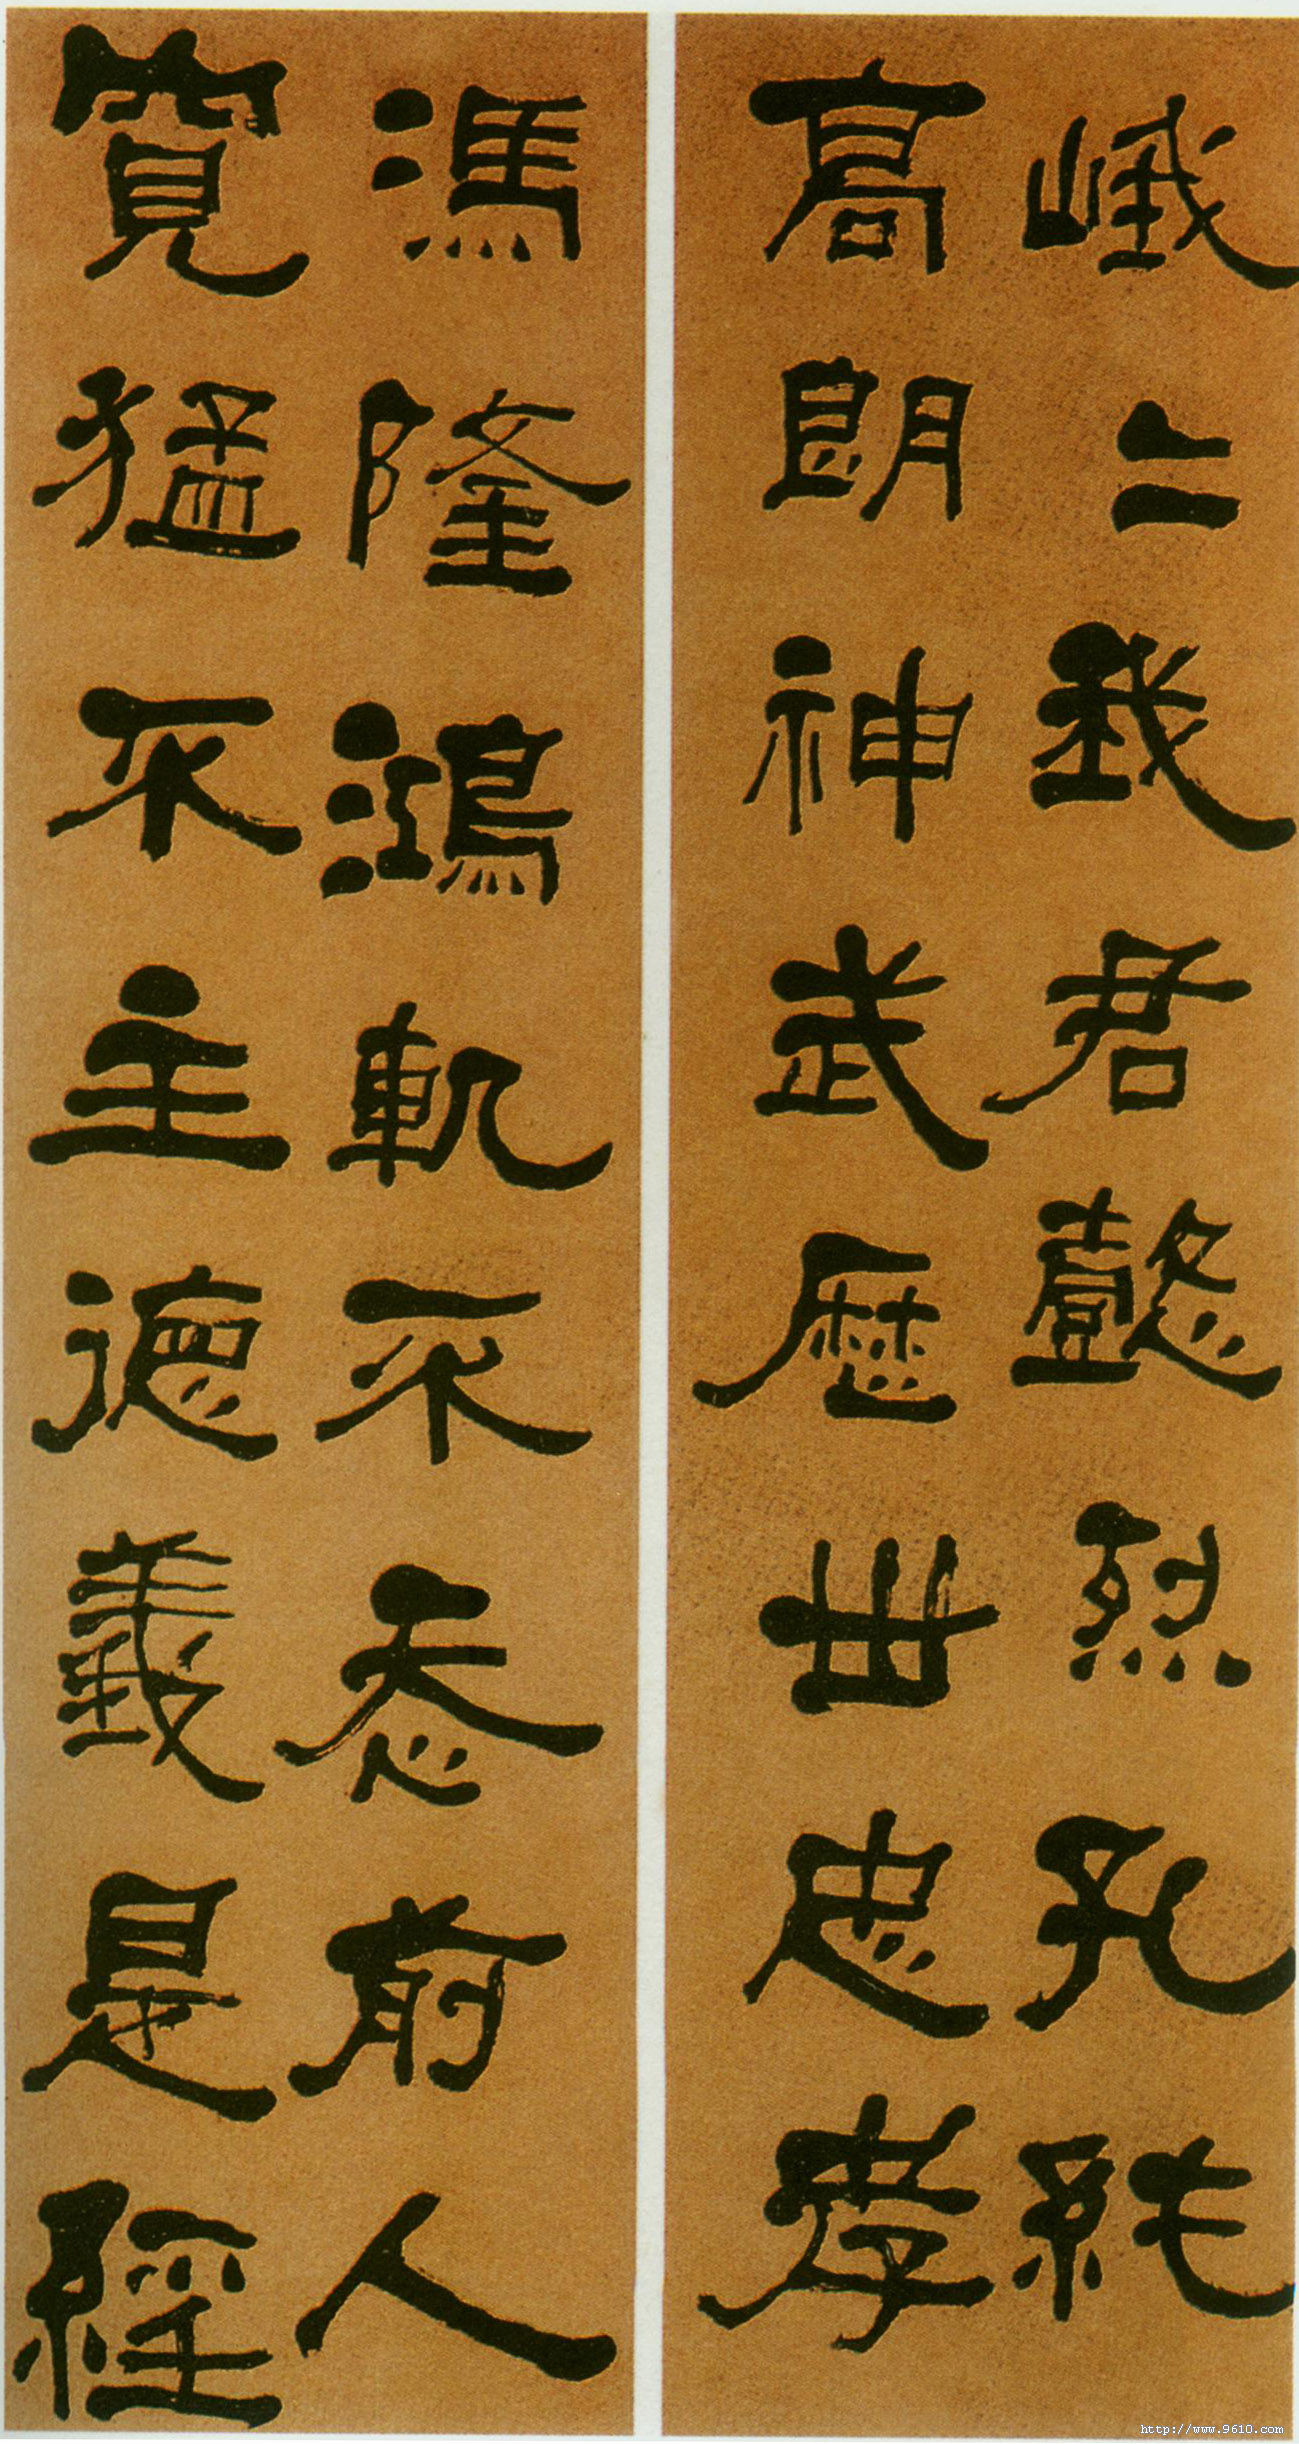 峨〻我君懿烈孔純
高朗神武歷世忠孝
馮隆鴻軌不忝前人
寬猛不主德義是經
http://www.9610.com